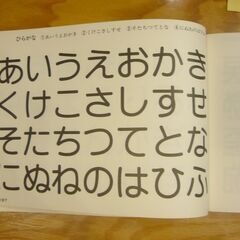 ひらがな ①あいうえおかき ②くけこさしすせ ③そたちつてとな ④にぬねのはひふ
あいうえおかき
くけこさしすせ
そたちつてとな
にぬねのはひふ